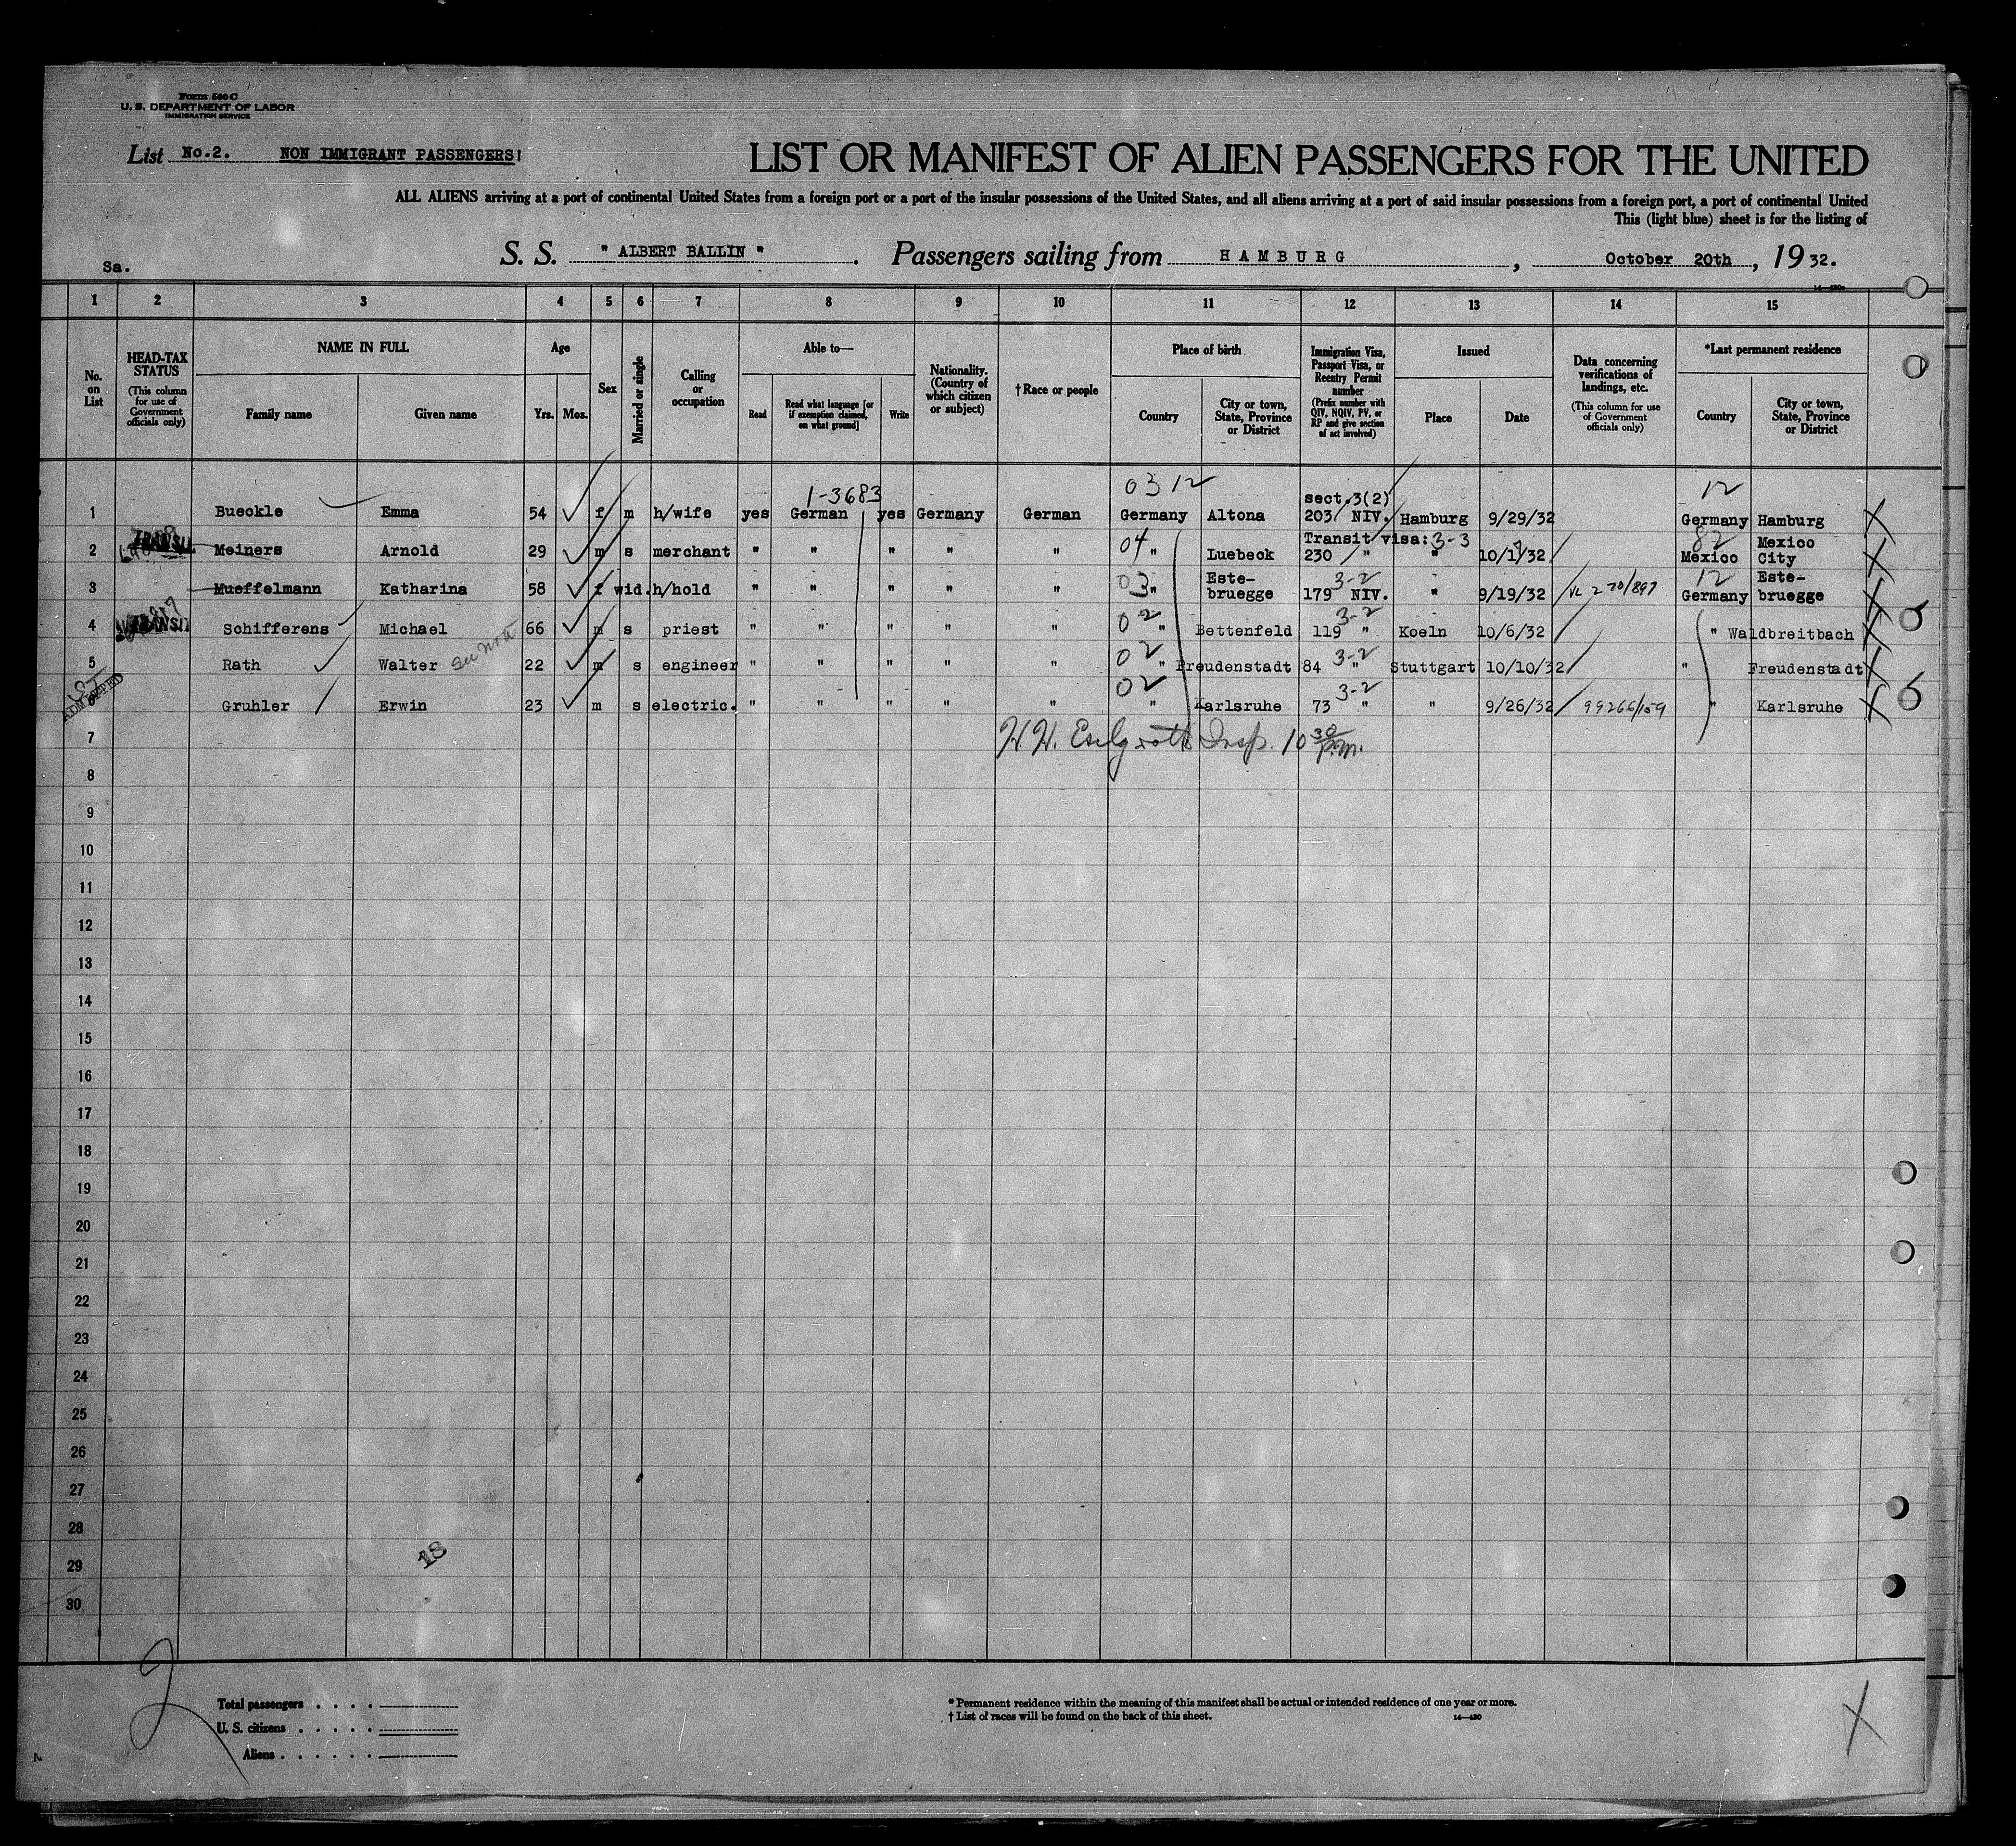 Form 500 C
U. S. DEPARTMENT OF LABOR
IMMIGRATION SERVICE
List No.2. NON IMMIGRANT PASSENGERS!
LIST OR MANIFEST OF ALIEN PASSENGERS FOR THE UNITED
ALL ALIENS arriving at a port of continental United States from a foreign port or a port of the insular possessions of the United States, and all aliens arriving at a port of said insular possessions from a foreign port, a port of continental United
This (light blue) sheet is for the listing of
Sa. S. S. " ALBERT BALLIN ". Passengers sailing from HAMBURG, October 20th, 1932.
1 2 3 4 5 6 7 8 9 10 11 12 13 14 15
No. on List
HEAD-TAX STATUS
(This column for use of Government officials only)
NAME IN FULL
Family name Given name
Age
Yrs. Mos.
Sex
Married or single
Calling or occupation
Able to—
Read
Read what language [or if exemption claimed, on what ground]
Write
Nationality. (Country of which citizen or subject)
† Race or people
Place of birth
Country
City or town, State, Province or District
Immigration Visa, Passport Visa, or Reentry Permit number
(Prefix number with QIV, NQIV, PV, or RP and give section of act involved)
Issued
Place Date
Data concerning verifications of landings, etc.
(This column for use of Government officials only)
*Last permanent residence
Country
City or town, State, Province or District
1-3683 03 12 sect.3(2) 12
1 Bueckle Emma 54 f m h/wife yes German yes Germany German Germany Altona 203 NIV. Hamburg 9/29/32 Germany Hamburg
TRANSIT 04 Transit visa: 3-3 82 Mexico
2 Meiners Arnold 29 m s merchant " " " " " " Luebeck 230 " " 10/1/32 Mexico City
03 Este- 3-2 12 Este-
3 Mueffelmann Katharina 58 f wid. h/hold " " " " " " bruegge 179 NIV. " 9/19/32 Germany bruegge
TRANSIT 02 3-2
4 Schifferens Michael 66 m s priest " " " " " " Bettenfeld 119 " Koeln 10/6/32 " Waldbreitbach
02 3-2
5 Rath Walter 22 m s engineer " " " " " " Freudenstadt 84 " Stuttgart 10/10/32 " Freudenstadt
ADMITTED 02 3-2
Gruhler Erwin 23 m s electric. " " " " " " Karlsruhe 73 " " 9/26/32 99266/159 " Karlsruhe
7 Insp. 10 30 p.m.
8
9
10
11
12
13
14
15
16
17
18
19
20
21
22
23
24
25
26
27
28
29
30
18
2
Total passengers
U. S. citizens
Aliens
* Permanent residence within the meaning of this manifest shall be actual or intended residence of one year or more.
† List of races will be found on the back of this sheet. 14—430
X